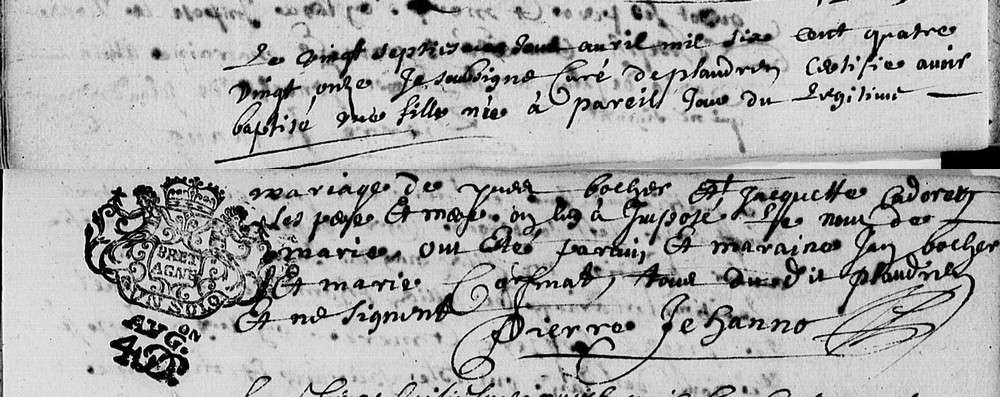 Le vingt septiesme jour avril mil six cent quatre
vingt onze Je soubsigné Curé de plaudren Certifie avoir
baptisé une fille née à pareil Jour du Legitime
mariage de yves bocher Et Jacquette Cadoret
Les pere Et mere on luy a Imposé le nom de
marie, ont Esté parain Et maraine Jan bocher
Et marie tous du dit plaudren
Et ne signent
Pierre Jehanno
BRET
AGNE
UN SOL
AUG.on
4D